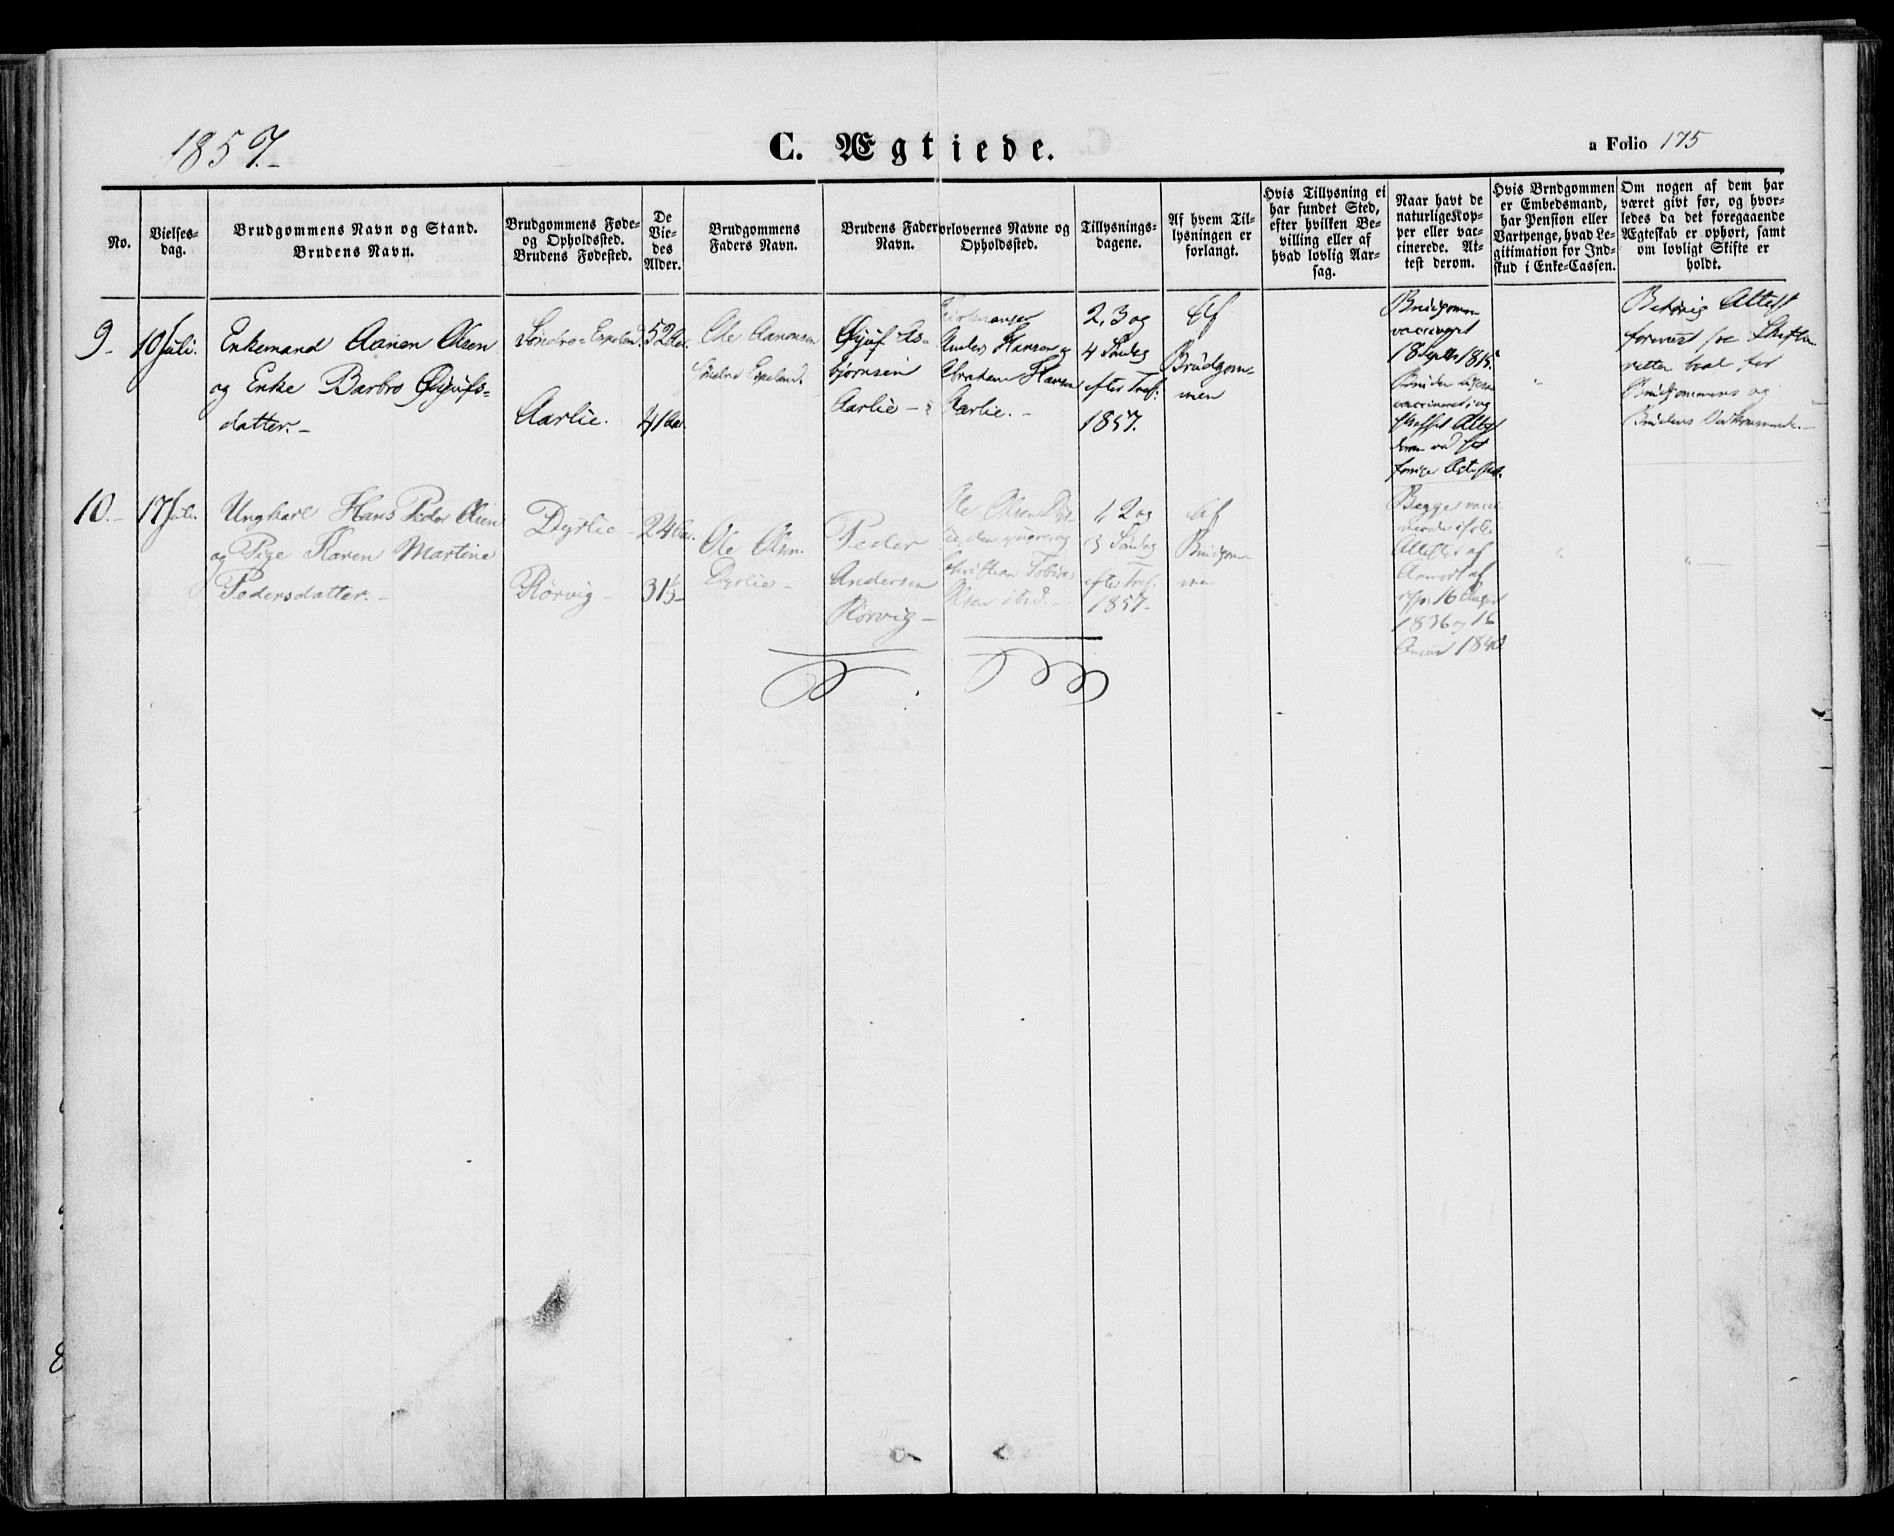 1857.-
C. Ægtiede.
a Folio 175
No.
Vielses-
dag.
Brudgommens Navn og Stand.
Brudens Navn.
Brudgommens Føde-
og Opholdssted.
Brudens Fødested.
De
Vie-
des
Alder.
Brudgommens
Faders Navn.
Brudens Fader
Navn.
orlovernes Navne og
Opholdssted.
Tillysnings-
dagene.
Af hvem Til-
lysningen er
forlangt.
Hvis Tillysning ei
har fundet Sted,
efter hvilken Be-
villing eller af
hvad lovlig Aar-
sag.
Naar havt de
naturlige Kop-
per eller vac-
cinerede. At-
test derom.
Hvis Brudgommen
er Embedsmand,
har Pension eller
Vartpenge, hvad Le-
gitimation for Ind-
skud i Enke-Cassen.
Om nogen af dem har
været givt før, og hvor-
ledes da det foregaaende
Ægteskab er ophørt, samt
om lovligt Skifte er
holdt.
9-
10 Juli.
Enkemand Aanen Olsen
og Enke Barbro
datter.-
Søndre Espeland
Aarlie.
52 Aar.
41 Aar.
Ole Aanonsen
Søndre Espeland.
As-
bjørnsen
Aarlie -
Anders Hansen og
Abraham Hansen
Aarlie. -
2, 3 og
4 Søndag
efter Tref:
1857.
Af
Brudgom-
men
Brudgommen
vaccineret
18 1815
Bruden
vaccineret, og
Attest
"
Attest
retten
Brudgommens og
Brudens
10.-
17 Juli.
Ungkarl Hans Peder Olsen
og Pige Karen Martine
Pedersdatter. -
Dyrlie -
Rørvig -
24 Aar.
31½ -
Ole Olsen.
Dyrlie -
Peder
Andersen
Rørvig -
Ole Olsen
Christian Tobias
Olsen ibid. -
1, 2 og
3 Søndag
efter Tref:
1857 -
Af
Brudgom-
men
Begge vacci-
Attester af
16 August
1836 og 16
"
"